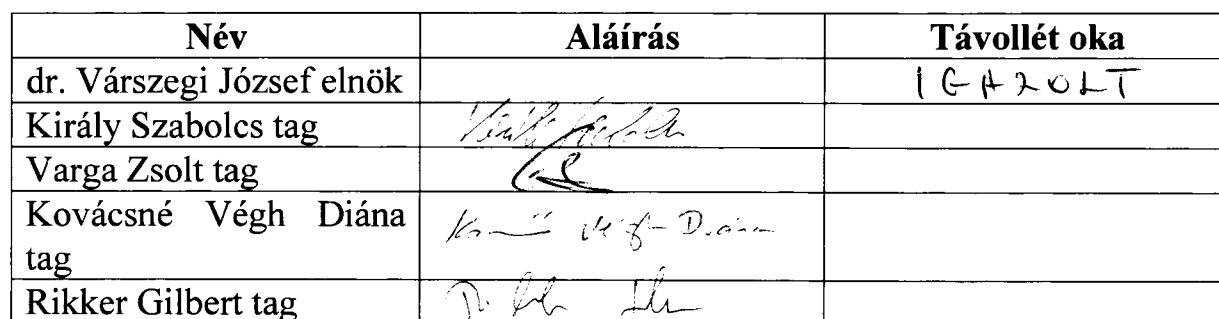 Név Aláírás Távollét oka
dr. Várszegi József elnök IGAZOLT
Király Szabolcs tag
Varga Zsolt tag
Kovácsné Végh Diána Végh Diána
tag
Rikker Gilbert tag